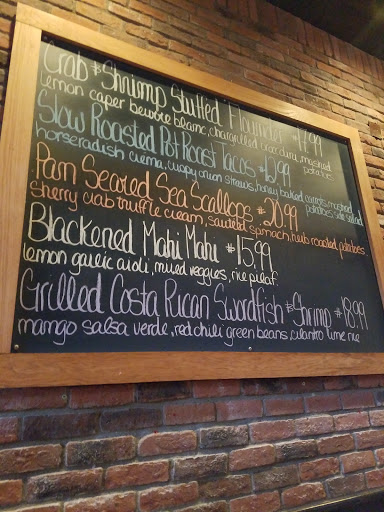 Crab & Shrimp Stuffed Flounder $17.99
lemon caper bewrre blanc, chargrilled broccolini, mashed potatoes
Slow Roasted Pot Roast Tacos $12.99
horseradish crema, crispy onion straws, honey baked carrots, mashed potatoes, side salad
Pan Seared Sea Scallops $20.99
sherry crab truffle cream, sauteed spinach, herb roasted potatoes
Blackened Mahi Mahi $15.99
lemon garlic aioli, mixed veggies, rice pilaf
Grilled Costa Rican Swordfish & Shrimp $18.99
mango salsa verde, red chili green beans, cilantro lime rice